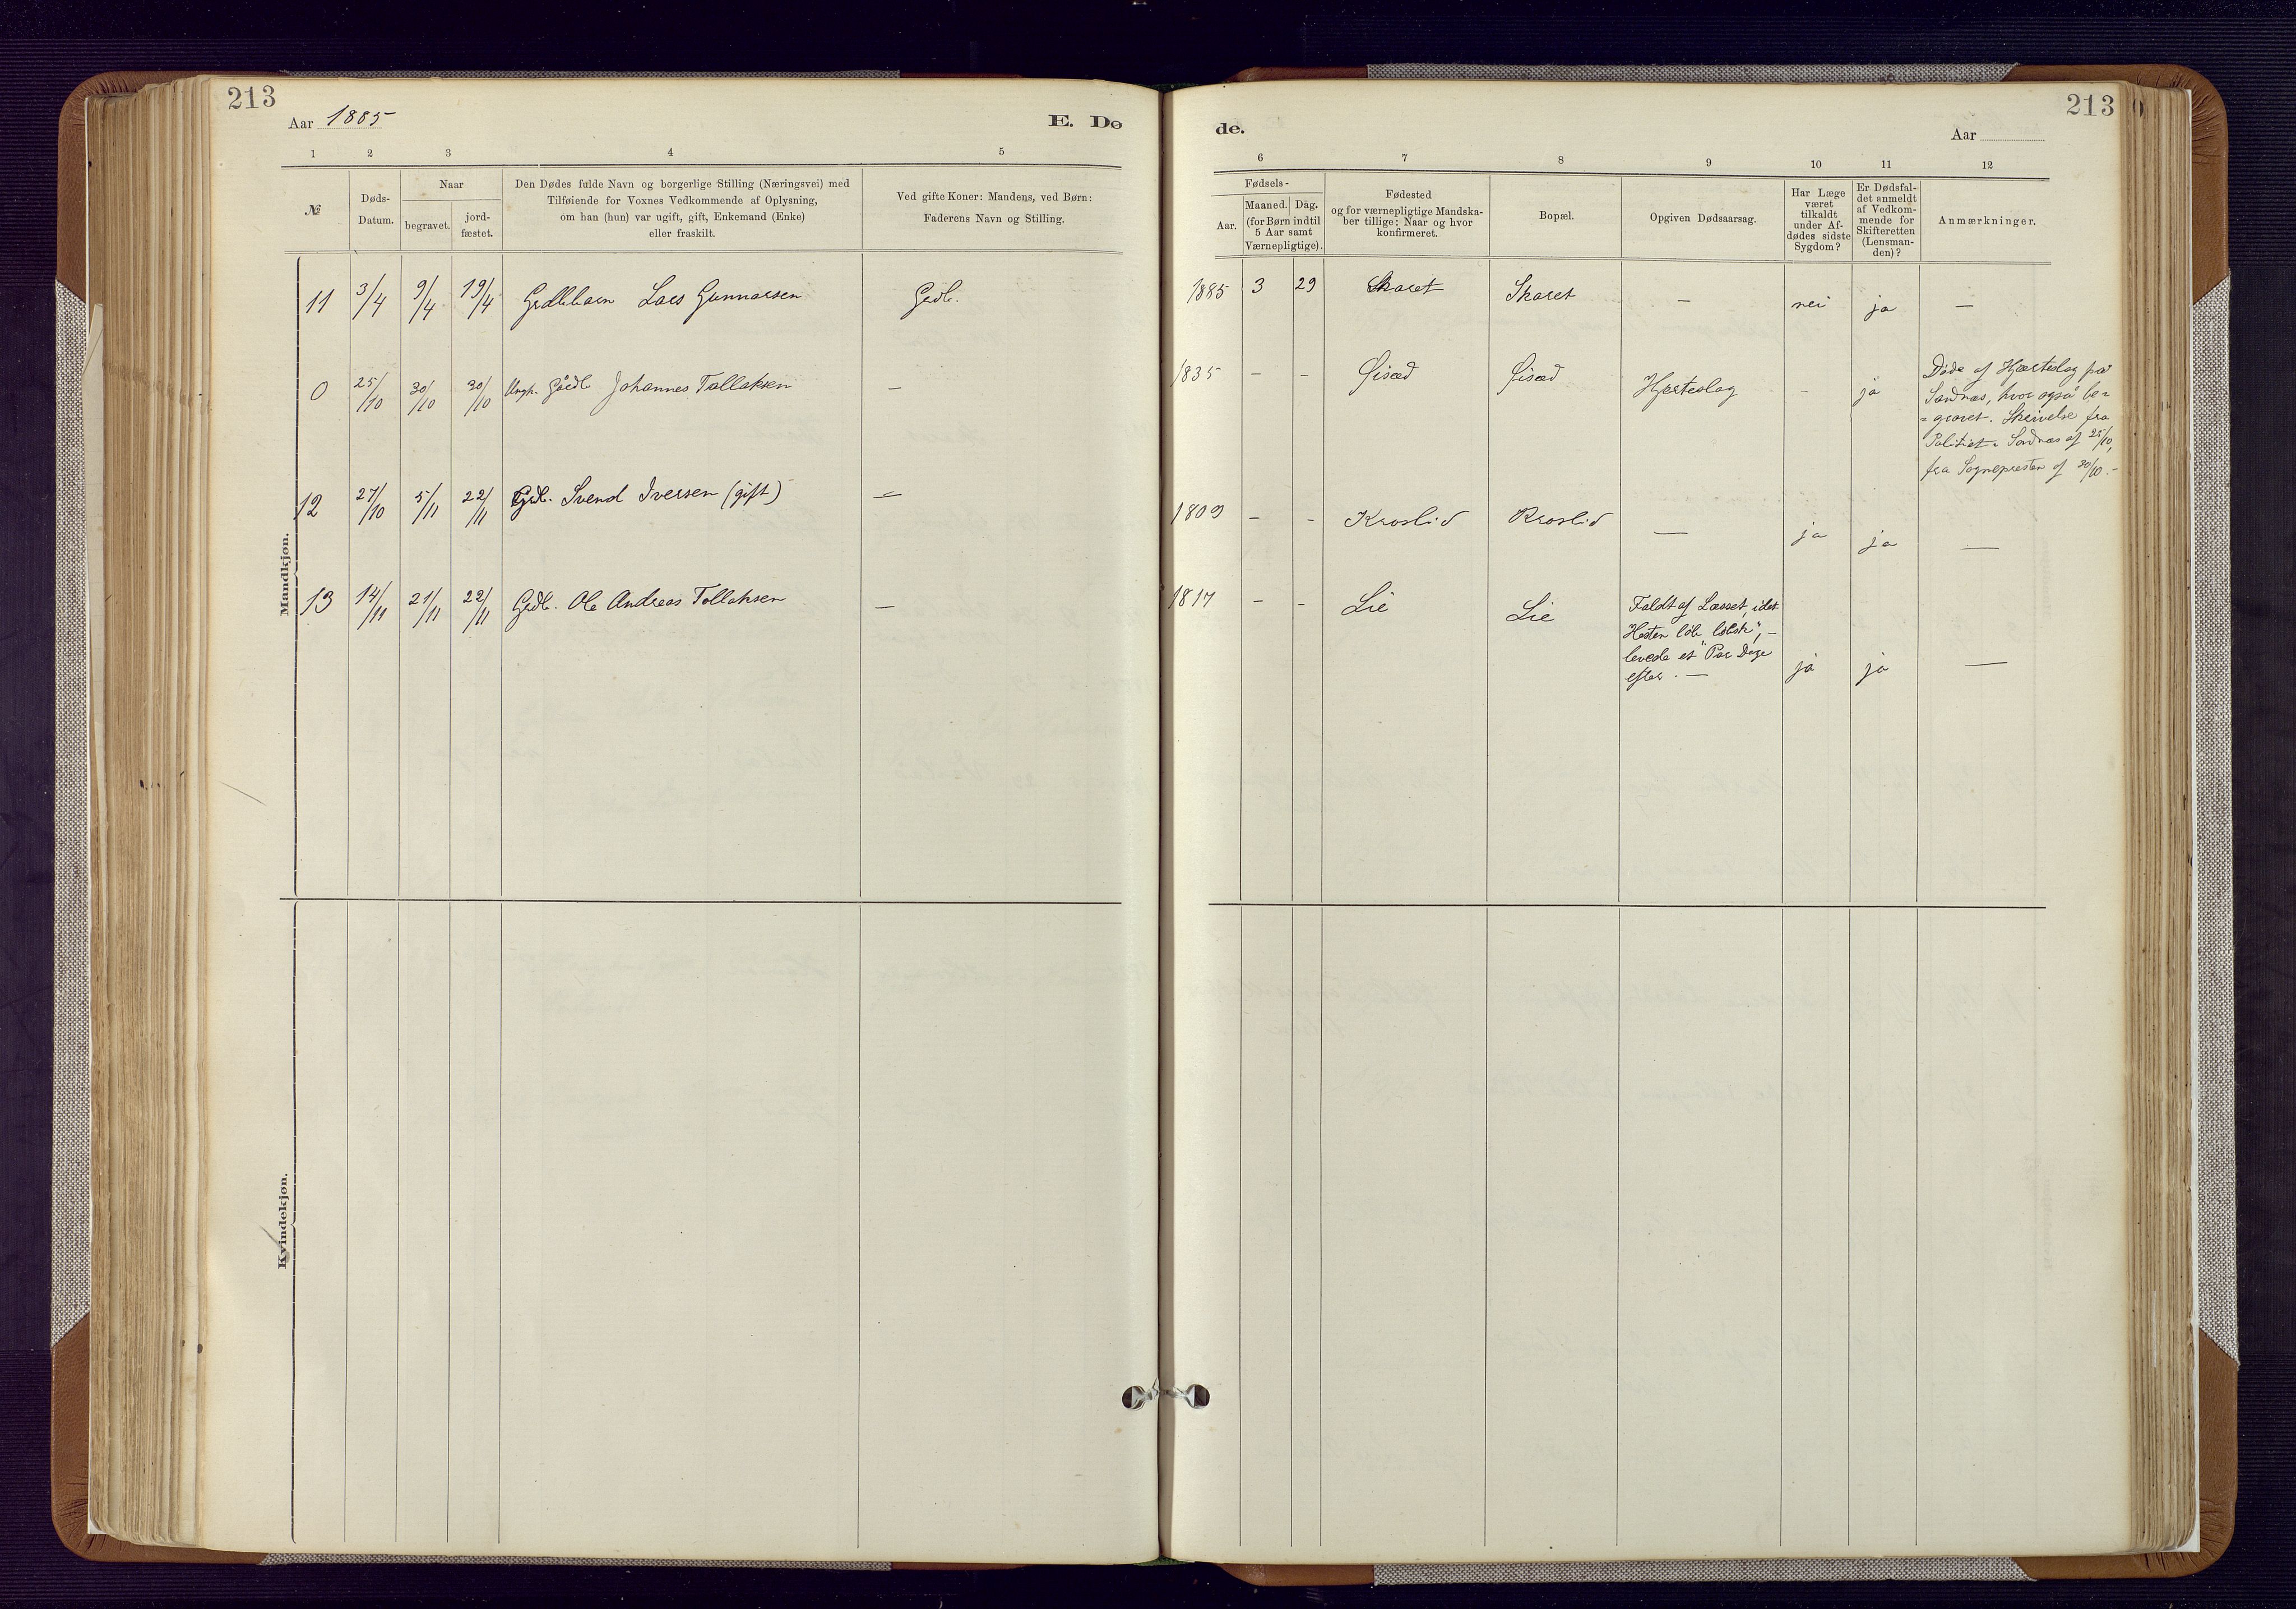 213
Aar 1885
E. Dø
1 2 3 4 5
№
Døds-
Datum.
Naar
begravet.
jord-
fæstet.
Den Dødes fulde Navn og borgerlige Stilling (Næringsvei) med
Tilføiende for Voxnes Vedkommende af Oplysning,
om han (hun) var ugift, gift, Enkemand (Enke)
eller fraskilt.
Ved gifte Koner: Mandens, ved Børn:
Faderens Navn og Stilling.
Mandkjøn.
11 3/4 9/4 19/4 Lars Gunnarsen
0 25/10 30/10 30/10 Ungk. Johannes Tallaksen —
12 27/10 5/11 22/11 Grdb. Svend Iversen (gift) —
13 14/11 21/11 22/11 Grdb. Ole Andreas Tollaksen —
Kvindekjøn.
de.
213
Aar
6 7 8 9 10 11 12
Fødsels-
Aar.
Maaned. Dag.
(for Børn indtil
5 Aar samt
Værnepligtige).
Fødested
og for værnepligtige Mandska-
ber tillige: Naar og hvor
konfirmeret.
Bopæl.
Opgiven Dødsaarsag.
Har Læge
været
tilkaldt
under Af-
dødes sidste
Sygdom?
Er Dødsfal-
det anmeldt
af Vedkom-
mende for
Skifteretten
(Lensman-
den)?
Anmærkninger.
1885 3 29 Skaret Skaret — nei ja —
1835 - - Øisæd Øisæd Hjerteslag - ja
Døde af Hjerteslag paa
Sandnæs, hvor også be-
gravet. Skrivelse fra
Politiet i Sandnæs af 25/10,
fra Sognepresten af 30/10.-
1809 - - Kroslid Kroslid — ja ja —
1817 - - Lie Lie
Faldt af Læsset, idet
Hesten løb "løbsk", -
levede et Par Dage
efter. —
ja ja —